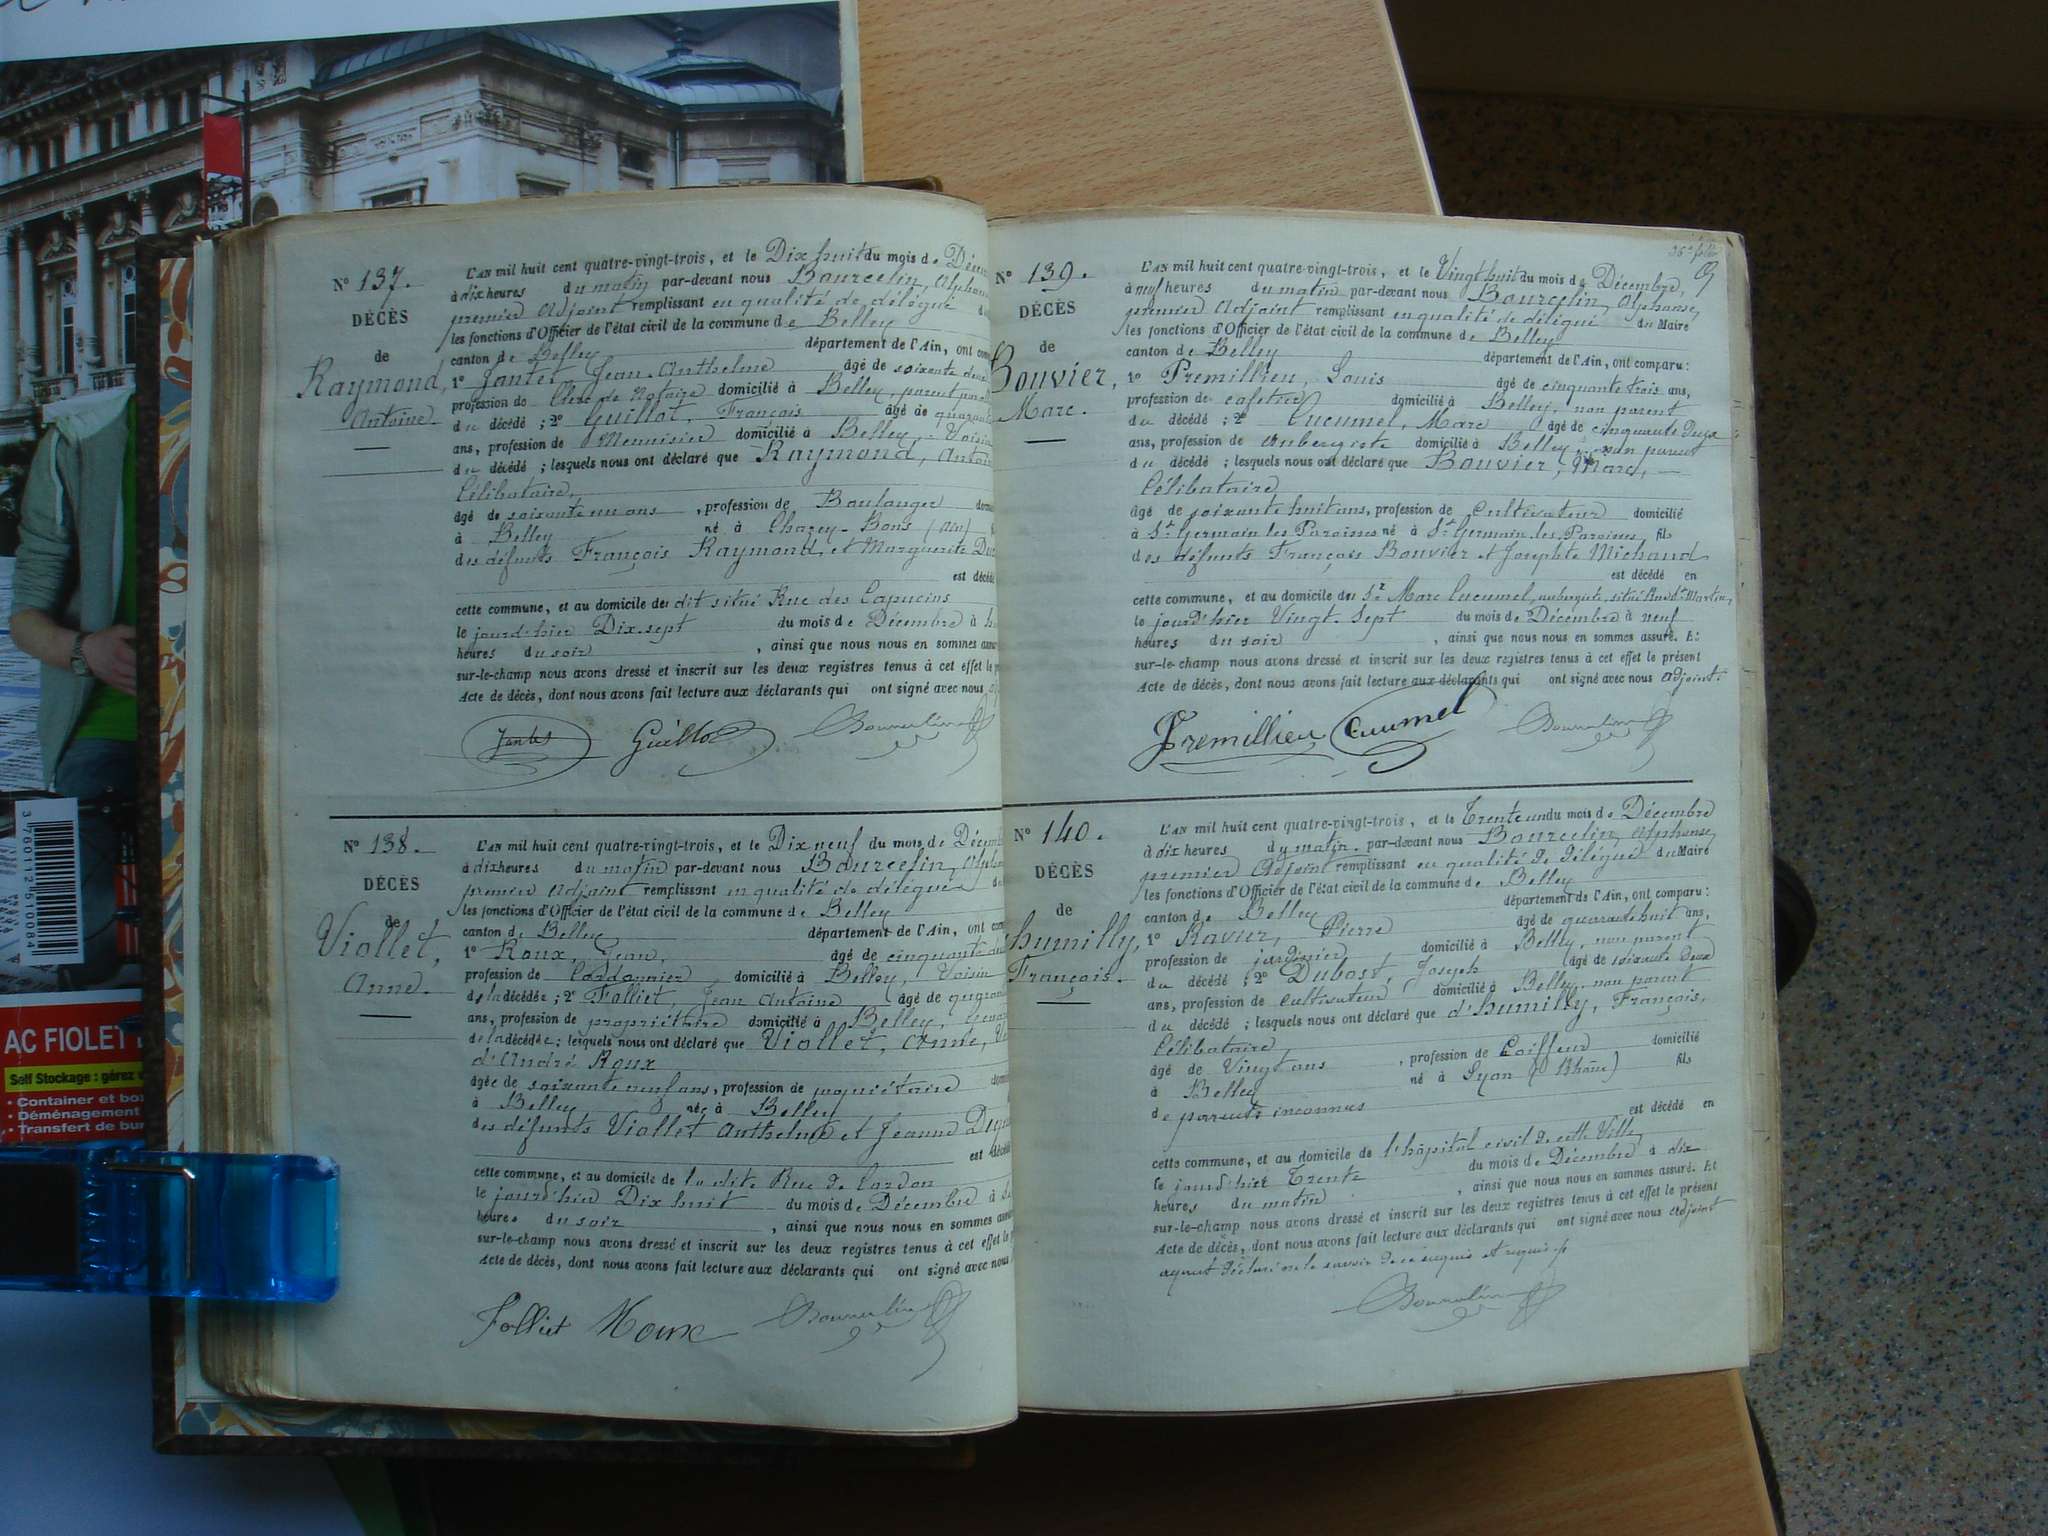 N° 137.
DÉCÈS
de
Raymond,
Antoine.
L'AN mil huit cent quatre-vingt-trois, et le Dix huit du mois de
à dix heures du matin par-devant nous Bourcelin,
premier Adjoint remplissant en qualité de délégué
les fonctions d'Officier de l'état civil de la commune de Belley
canton de Belley département de l'Ain, ont
1° Jantet Jean-Anthelme âgé de soixante
profession de Clerc de Notaire domicilié à Belley, parent
du décédé ; 2° Guillot, François âgé de
ans, profession de Menuisier domicilié à Belley, Voisin
du décédé ; lesquels nous ont déclaré que Raymond,
Célibataire,
âgé de soixante un ans, profession de Boulanger
à Belley né à Chazey-Bons (Ain)
des défunts François Raymond, et Marguerite
est décédé
cette commune, et au domicile du dit situé Rue des Capucins
le jourd'hier Dix-sept du mois de Décembre à
heures du soir, ainsi que nous nous en sommes
sur-le-champ nous avons dressé et inscrit sur les deux registres tenus à cet effet le
Acte de décès, dont nous avons fait lecture aux déclarants qui ont signé avec nous
Guillot
N° 138.
DÉCÈS
de
Viollet,
Anne.
L'AN mil huit cent quatre-vingt-trois, et le Dix neuf du mois de
à dix heures du matin par-devant nous Bourcelin,
premier Adjoint remplissant en qualité de délégué
les fonctions d'Officier de l'état civil de la commune de Belley
canton de Belley département de l'Ain, ont
1° Roux, Jean, âgé de cinquante
profession de Cordonnier, domicilié à Belley, Voisin
de la décédée ; 2° Folliet, Jean Antoine âgé de
ans, profession de propriétaire domicilié à Belley,
de la décédée ; lesquels nous ont déclaré que Viollet, Anne,
d'André Roux
âgée de soixante neuf ans, profession de propriétaire
à Belley née à Belley
des défunts Viollet Anthelme et Jeanne
est décédée
cette commune, et au domicile de la dite Rue de Cordon
le jourd'hier Dix huit du mois de Décembre à
heures du soir, ainsi que nous nous en sommes
sur-le-champ nous avons dressé et inscrit sur les deux registres tenus à cet effet le
Acte de décès, dont nous avons fait lecture aux déclarants qui ont signé avec nous
Folliet Roux
N° 139.
DÉCÈS
de
Bouvier,
Marc.
L'AN mil huit cent quatre-vingt-trois, et le Vingt huit du mois de Décembre,
à neuf heures du matin par-devant nous Bourcelin, Alphonse,
premier Adjoint remplissant en qualité de délégué du Maire
les fonctions d'Officier de l'état civil de la commune de Belley
canton de Belley département de l'Ain, ont comparu :
1° Premillieu, Louis âgé de cinquante trois ans,
profession de cafetier domicilié à Belley, non parent
du décédé ; 2° Cucumel, Marc âgé de cinquante deux
ans, profession de Aubergiste domicilié à Belley non parent
du décédé ; lesquels nous ont déclaré que Bouvier, Marc,
Célibataire
âgé de soixante huit ans, profession de Cultivateur domicilié
à St Germain les Paroisses né à St Germain les Paroisses, fils
des défunts François Bouvier et Josephte Michaud
est décédé en
cette commune, et au domicile du Sr Marc Cucumel, aubergiste, situé Rue St Martin,
le jourd'hier Vingt-Sept du mois de Décembre à neuf
heures du soir, ainsi que nous nous en sommes assuré. Et
sur-le-champ nous avons dressé et inscrit sur les deux registres tenus à cet effet le présent
Acte de décès, dont nous avons fait lecture aux déclarants qui ont signé avec nous adjoint.
Premillieu Cucumel
N° 140.
DÉCÈS
de
humilly,
François.
L'AN mil huit cent quatre-vingt-trois, et le Trente un du mois de Décembre
à dix heures du matin par-devant nous Bourcelin, Alphonse,
premier Adjoint remplissant en qualité de délégué du Maire
les fonctions d'Officier de l'état civil de la commune de Belley
canton de Belley département de l'Ain, ont comparu :
1° Ravier, Pierre âgé de quarante huit ans,
profession de jardinier domicilié à Belley, non parent
du décédé ; 2° Dubost, Joseph âgé de soixante deux
ans, profession de cultivateur domicilié à Belley, non parent
du décédé ; lesquels nous ont déclaré que d'humilly, François,
Célibataire,
âgé de Vingt ans, profession de Coiffeur domicilié
à Belley né à Lyon (Rhône) fils
de parents inconnus
est décédé en
cette commune, et au domicile de l'hôpital civil de cette Ville,
le jourd'hier Trente du mois de Décembre à dix
heures du matin, ainsi que nous nous en sommes assuré. Et
sur-le-champ nous avons dressé et inscrit sur les deux registres tenus à cet effet le présent
Acte de décès, dont nous avons fait lecture aux déclarants qui ont signé avec nous adjoint
ayant déclaré ne le savoir de ce enquis et requis
AC FIOLET
Self Stockage : gérez
• Container et
• Déménagement
• Transfert de